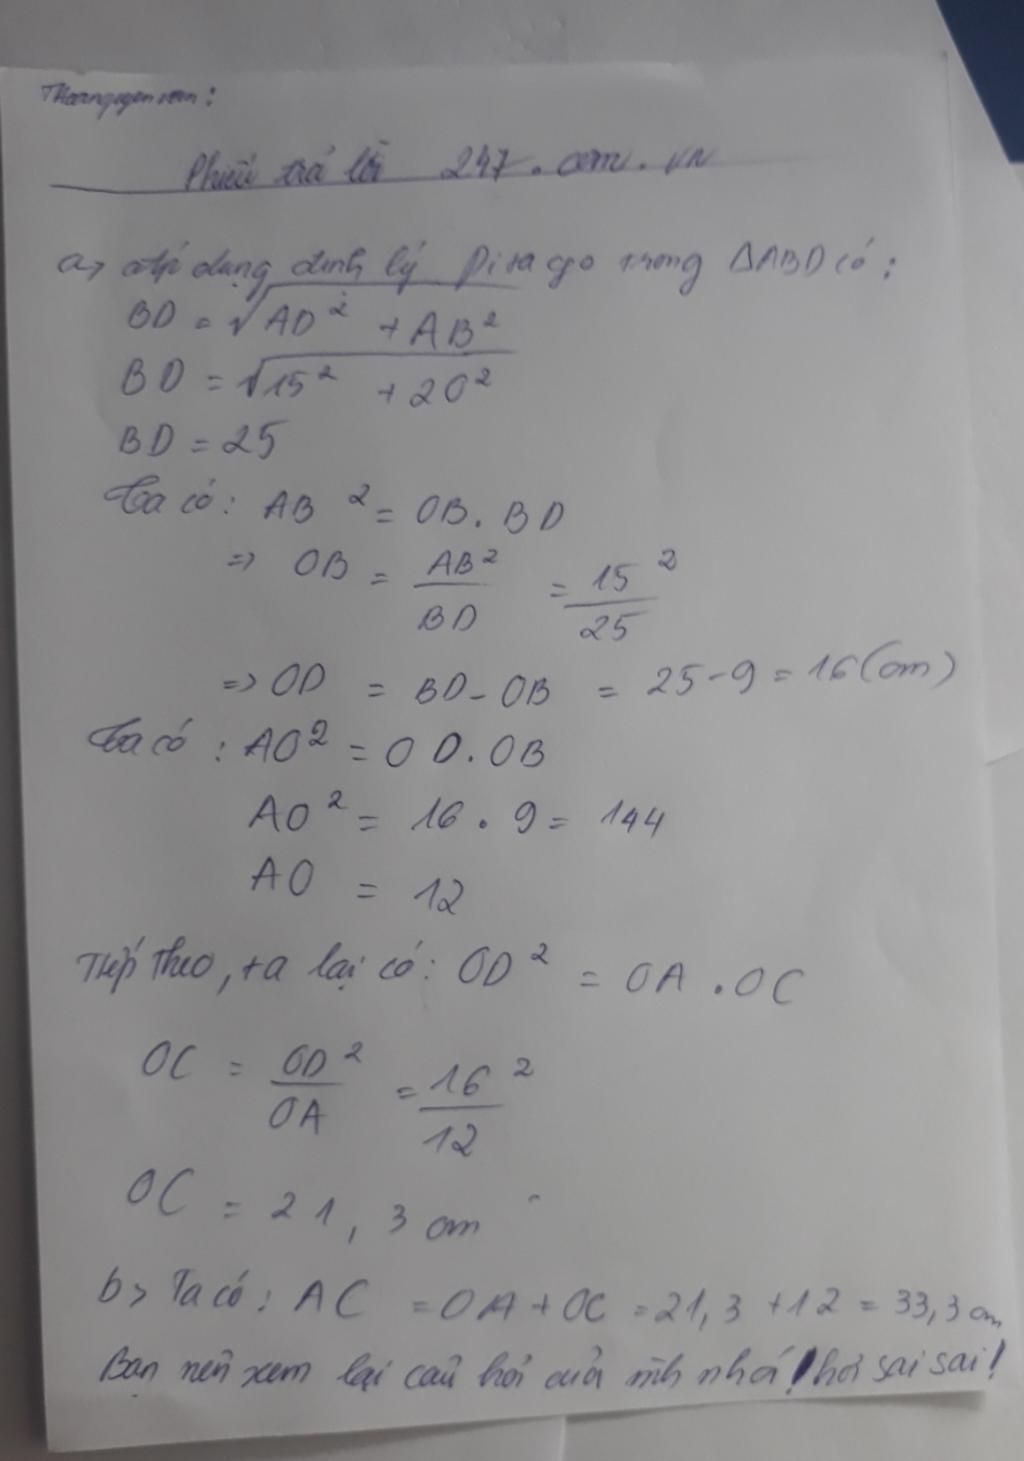 Phiếu trả lời 247.com.vn
a> Áp dụng định lý Pitago trong ΔABD có:
BD = √AD² + AB²
BD = √15² + 20²
BD = 25
Ta có: AB² = OB. BD
=> OB = AB²/BD = 15²/25
=> OD = BD - OB = 25 - 9 = 16 (cm)
Ta có: AO² = OD. OB
AO² = 16 . 9 = 144
AO = 12
Tiếp theo, ta lại có: OD² = OA . OC
OC = OD²/OA = 16²/12
OC = 21,3 cm
b> Ta có: AC = OA + OC = 21,3 + 12 = 33,3 cm
Bạn nên xem lại câu hỏi của mình nhá! hơi sai sai!